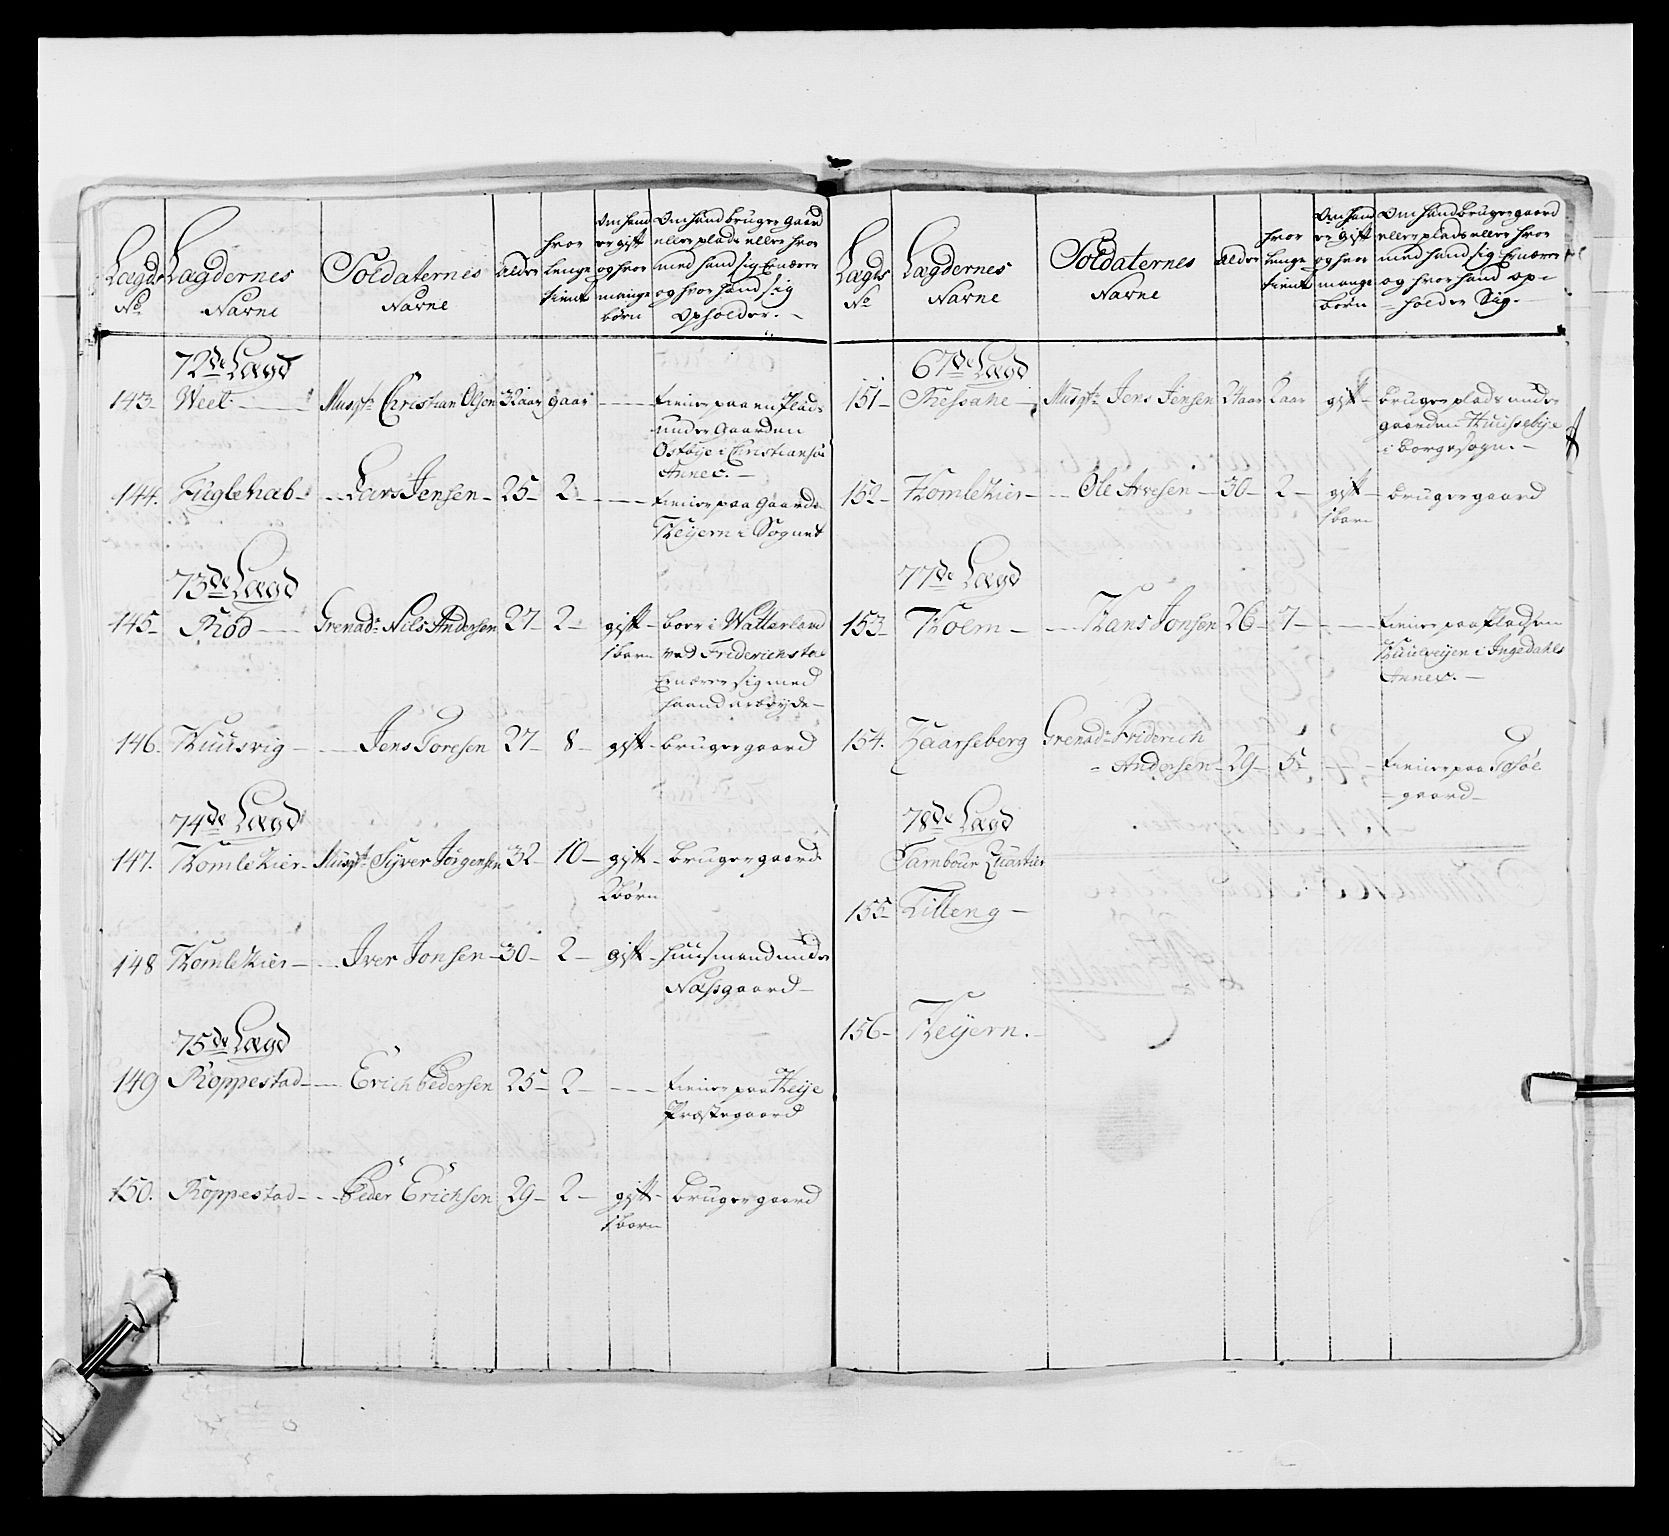 Lægds No
Lægdernes Navne
Soldaternes Navne
Alder
hvor lenge tient
Om hand er gift og hvor mange børn
Om hand bruger Gaard eller plads eller hvor med hand sig Ernærer og hvor hand sig Opholder.
72de Lægd
143 Weel Musqtr Christian Olsen 32 aar 9 aar tiener paa en Plads
under Gaarden
i Christiansøe
Annex.
144. Fuglehab Lars Jensen 25 2 tiener paa Gaarden
Heyern i Sognet
73de Lægd
145 Röd Grenadr Nils Andersen 27 2 gift boer i Watterland
1 barn ved Friderichstad
Ernærer sig med
haand arbeyde
146. Huusvig Jens Toresen 27 8 gift bruger gaard
74de Lægd
147. Homlekier Musqt Syver Jörgensen 32 10 gift bruger gaard
2 börn
148 Homlekier Iver Jonsen 30 2 gift huusmand under
Næssgaard
75de Lægd
149 Roppestad Erich Pedersen 25 2 tiener paa
Præstegaard
150. Roppestad Peder Erichsen 29 2 gift bruger gaard
1 barn
Lægds No
Lægdernes Navne
Soldaternes Navne
Alder
hvor lenge tient
Om hand er gift og hvor mange börn
Om hand bruger gaard eller plads eller hvor med hand sig Ernærer og hvor hand op-
holder Sig.
67de Lægd
151 Musqtr Jens Jensen 24 aar 2 aar gift bruger plads under
gaarden Huusebye
i Borge sogn.
152 Homlekier Ole Arvesen 30 2 gift bruger gaard
1 barn
77de Lægd
153 Holm Hans Jonsen 26 7 tiener paa Pladsen
i Ingedahls
Annex.
154. Kaarseberg Grenadr Friderich
Andersen 29 5 tiener paa
gaard
78de Lægd
Tambour Quartier
155 Killeng
156 Heyern.